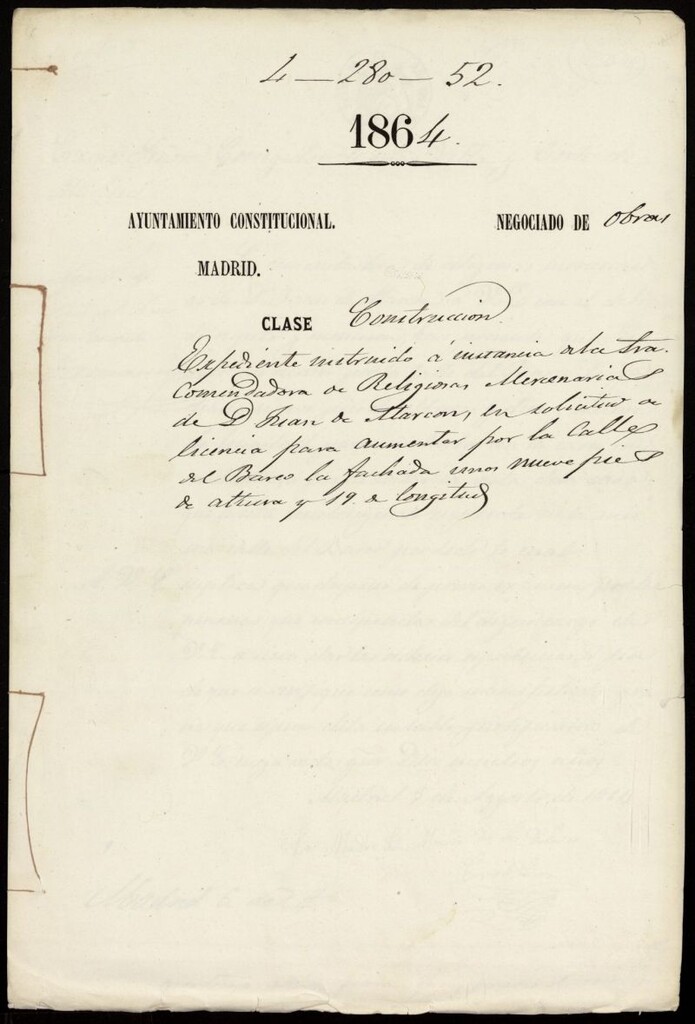 4 — 280 — 52.
1864.
AYUNTAMIENTO CONSTITUCIONAL. NEGOCIADO DE Obras
MADRID.
CLASE Construccion.
Expediente instruido á instancia de la Sra.
Comendadora de Religiosas Mercenarias
de D Juan de Alarcon, en solicitud de
licencia para aumentar por la Calle
del Barco la fachada unos nueve pies
de altura y 19 de longitud